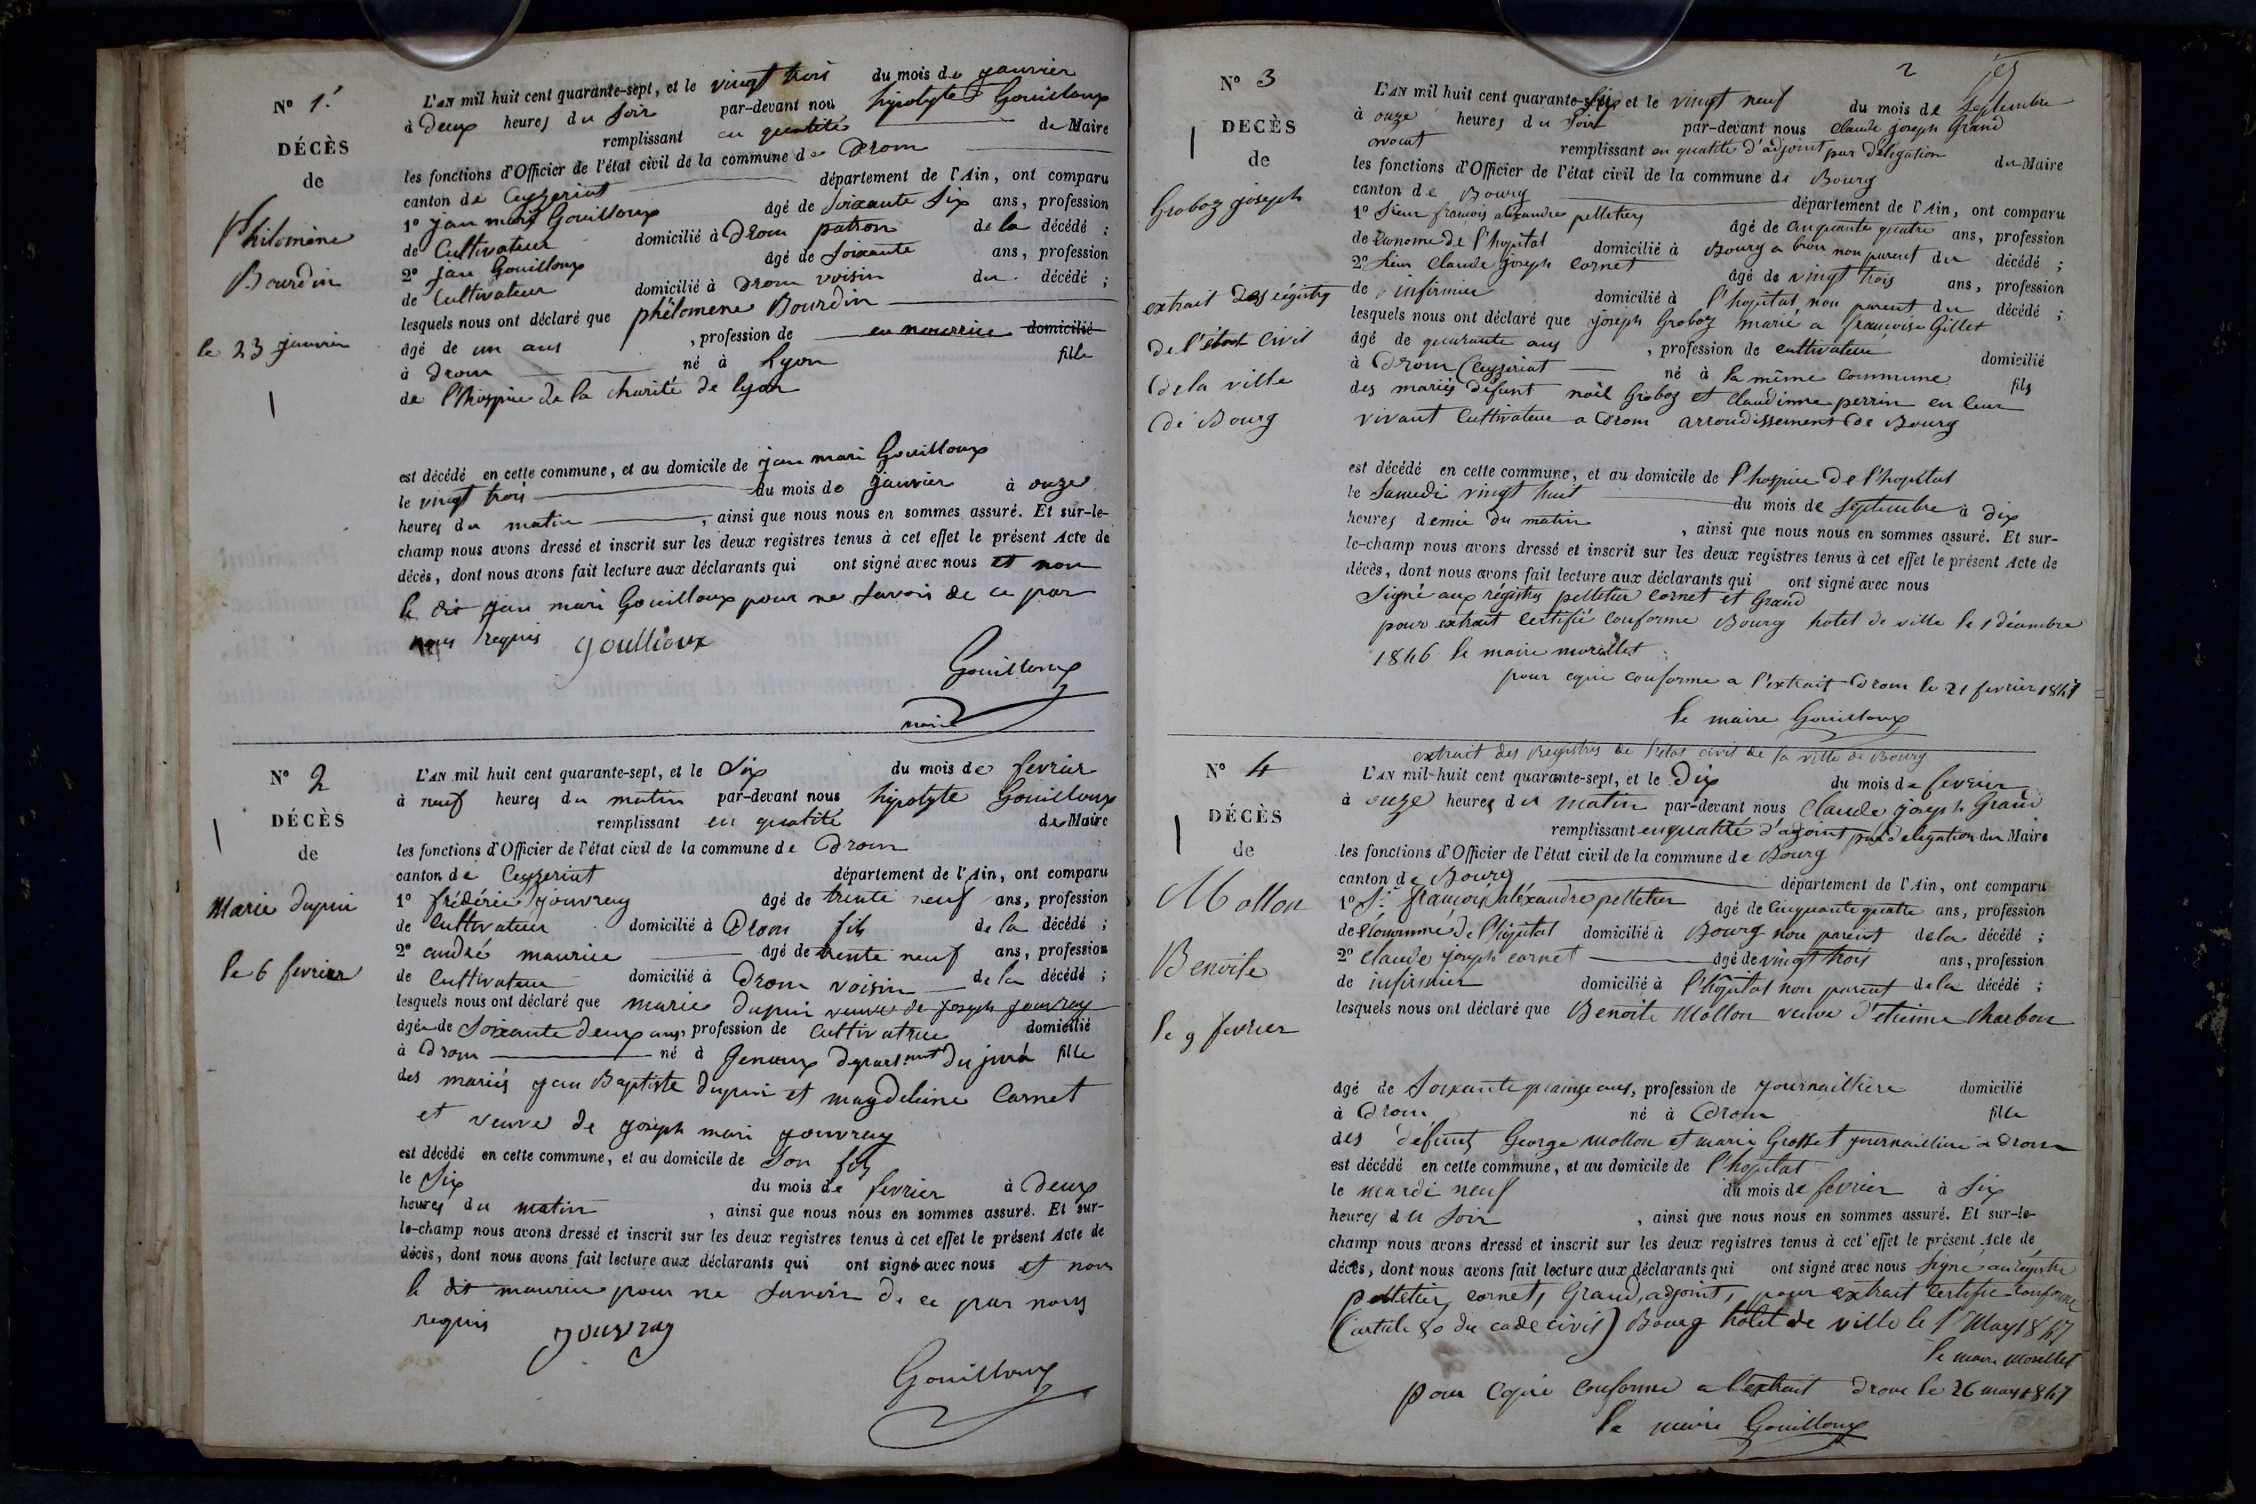 N° 1.
DÉCÈS
de
Philomène
Bourdin
le 23 janvier
L'AN mil huit cent quarante-sept, et le vingt trois du mois de janvier
à deux heures du soir par-devant nou hypolyte Gouilloux
remplissant en qualité de Maire
les fonctions d'Officier de l'état civil de la commune de Drom
canton de Ceyzeriat département de l'Ain, ont comparu
1° jan mari Gouilloux âgé de Soixante Six ans, profession
de Cultivateur domicilié à Drom patron de la décédé ;
2° jan Gouilloux âgé de Soixante ans, profession
de Cultivateur domicilié à Drom voisin du décédé ;
lesquels nous ont déclaré que philomene Bourdin
âgé de un ans , profession de en nourrice domicilié
à Drom né à Lyon fille
de l'hospice de la charité de lyon
est décédé en cette commune, et au domicile de jan mari Gouilloux
le vingt trois du mois de janvier à onze
heures du matin , ainsi que nous nous en sommes assuré. Et sur-le-
champ nous avons dressé et inscrit sur les deux registres tenus à cet effet le présent Acte de
décès, dont nous avons fait lecture aux déclarants qui ont signé avec nous et non
le dit jan mari Gouilloux pour ne savoir de ce par
nous requis goullioux
Gouilloux
maire
N° 2
DÉCÈS
de
Marie dupin
le 6 fevrier
L'AN mil huit cent quarante-sept, et le Six du mois de fevrier
à neuf heures du matin par-devant nous hypolyte Gouilloux
remplissant en qualité de Maire
les fonctions d'Officier de l'état civil de la commune de Drom
canton de Ceyzeriat département de l'Ain, ont comparu
1° frédéric jouvray âgé de trente neuf ans, profession
de Cultivateur domicilié à Drom fils de la décédé ;
2° andré maurice âgé de trente neuf ans, profession
de Cultivateur domicilié à Drom voisin de la décédé ;
lesquels nous ont déclaré que marie dupin veuve de joseph jouvray
âgée de Soixante deux ans, profession de Cultivatrice domicilié
à Drom né à Genoux departement du jura fille
des mariés jean Baptiste dupin et magdeleine Carnet
et veuve de joseph mari jouvray
est décédé en cette commune, et au domicile de Son fils
le Six du mois de fevrier à deux
heures du matin , ainsi que nous nous en sommes assuré. Et sur-
le-champ nous avons dressé et inscrit sur les deux registres tenus à cet effet le présent Acte de
décès, dont nous avons fait lecture aux déclarants qui ont signé avec nous et non
le dit maurice pour ne savoir de ce par nous
requis jouvray
Gouilloux
2
N° 3
DECÈS
de
Groboz joseph
extrait des régistres
de l'état civil
de la ville
de Bourg
L'AN mil huit cent quarante-six et le vingt neuf du mois de Septembre
à onze heures du soir par-devant nous Claude joseph Grand
avocat remplissant en qualité d'adjoint par délégation du Maire
les fonctions d'Officier de l'état civil de la commune de Bourg
canton de Bourg département de l'Ain, ont comparu
1° Sieur francois alexandre pelletier âgé de cinquante quatre ans, profession
de économe de l'hopital domicilié à Bourg a brou non parent du décédé ;
2° Sieur Claude joseph Cornet âgé de vingt trois ans, profession
de infirmier domicilié à l'hopital non parent du décédé ;
lesquels nous ont déclaré que joseph Groboz marié a francoise Gillet
âgé de quarante ans , profession de cultivateur domicilié
à Drom Ceyzeriat né à la même commune fils
des mariés défunt noël Groboz et Claudinne perrin en leur
vivant Cultivateur a Drom arrondissement de Bourg
est décédé en cette commune, et au domicile de l'hospice de l'hopital
le Samedi vingt huit du mois de Septembre à dix
heures demie du matin , ainsi que nous nous en sommes assuré. Et sur-
le-champ nous avons dressé et inscrit sur les deux registres tenus à cet effet le présent Acte de
décès, dont nous avons fait lecture aux déclarants qui ont signé avec nous
Signé aux régistres pelletier Cornet et Grand
pour extrait certifié conforme Bourg hotel de ville le 1 décembre
1846 le maire morellet
pour copie conforme a l'extrait Drom le 21 fevrier 1847
le maire Gouilloux
N° 4
DÉCÈS
de
Mollon
Benoite
le 9 fevrier
extrait des Registres de l'etat civil de la ville de Bourg
L'AN mil huit cent quarante-sept, et le Dix du mois de fevrier
à onze heures du matin par-devant nous Claude joseph Grand
remplissant en qualité d'adjoint par delegation du Maire
les fonctions d'Officier de l'état civil de la commune de Bourg
canton de Bourg département de l'Ain, ont comparu
1° Sr. francois aléxandre pelletier âgé de Cinquante quatre ans, profession
de l'économe de l'hôpital domicilié à Bourg non parent de la décédé ;
2° Claude joseph cornet âgé de vingt trois ans, profession
de infirmier domicilié à l'hôpital non parent de la décédé ;
lesquels nous ont déclaré que Benoite Mollon veuve d'etienne Charbon
âgé de Soixante quinze ans, profession de journaillière domicilié
à Drom né à Drom fille
des défunts George mollon et marie Grosset journaillière a Drom
est décédé en cette commune, et au domicile de l'hopital
le mardi neuf du mois de fevrier à Six
heures du Soir , ainsi que nous nous en sommes assuré. Et sur-le-
champ nous avons dressé et inscrit sur les deux registres tenus à cet effet le présent Acte de
décès, dont nous avons fait lecture aux déclarants qui ont signé avec nous Signé au registre
pelletier, cornet, Grand, adjoint, pour extrait certifié conforme
(article 80 du code civil) Bourg hotel de ville le 1 May 1847
le maire Morellet
pour copie conforme a l'extrait Drom le 26 may 1847
le maire Gouilloux